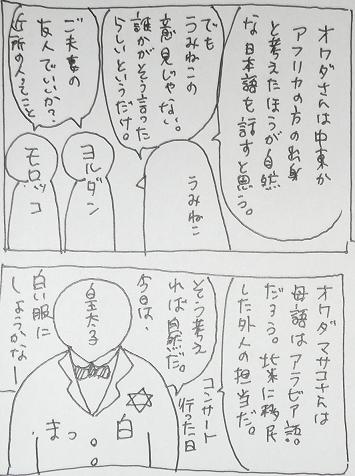 オワダさんは中東か
アフリカの方の出身
と考えたほうが自然
な日本語を話すと思う。
でも
うみねこの
意見じゃない。
誰かがそう言った
らしいというだけ。
ご夫妻の
友人でいいか?
近所の人ってこと
うみねこ
ヨルダン
モロッコ
オワダマサコさんは
母語はアラビア語。
だろう。北米に移民
した外人の担当だ。
そう考え
れば自然だ。
コンサート
行った日
今日は、
白い服に
しようかなー
皇太子
まっ白